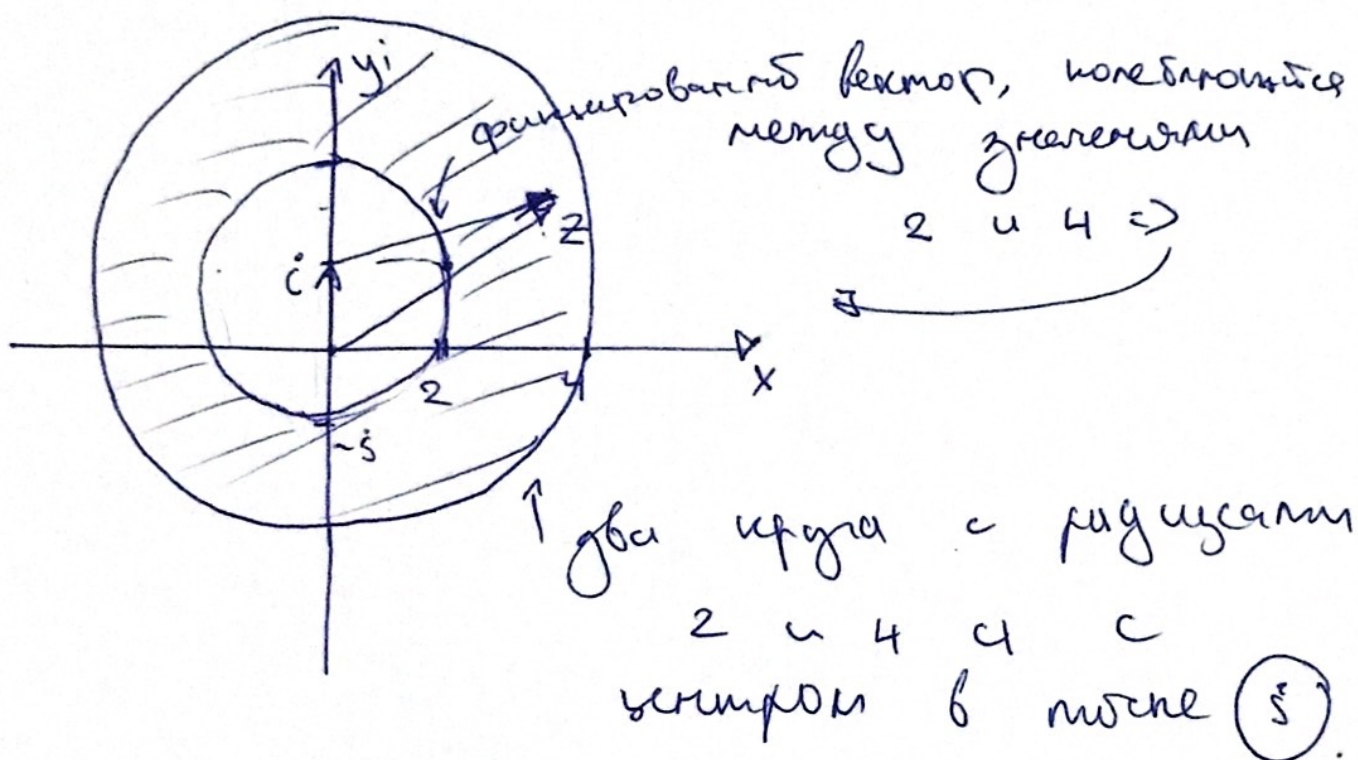 yi
фиксированный вектор, колеблющийся
между значениями
2 и 4 =>
i
z
2
4
x
-i
два круга с радиусами
2 и 4 с
центром в точке i.